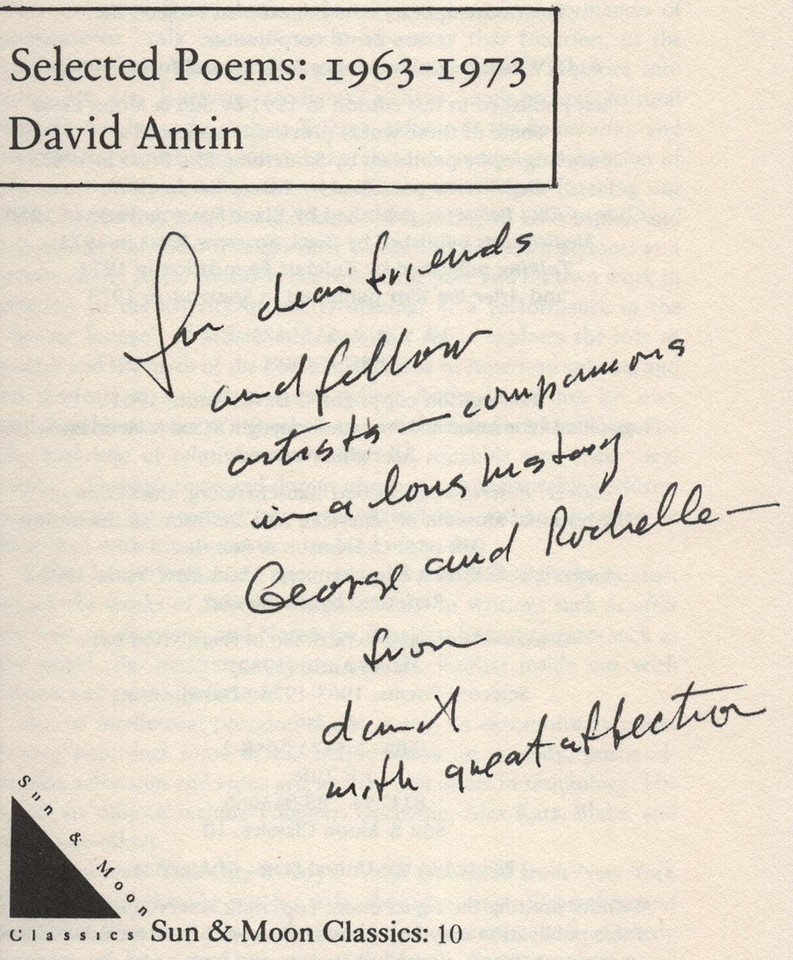 Selected Poems: 1963-1973
David Antin
For dear friends
and fellow
artists — companions
in a long history
George and Rochelle —
from
david
with great affection
Sun & Moon
Classics
Sun & Moon Classics: 10